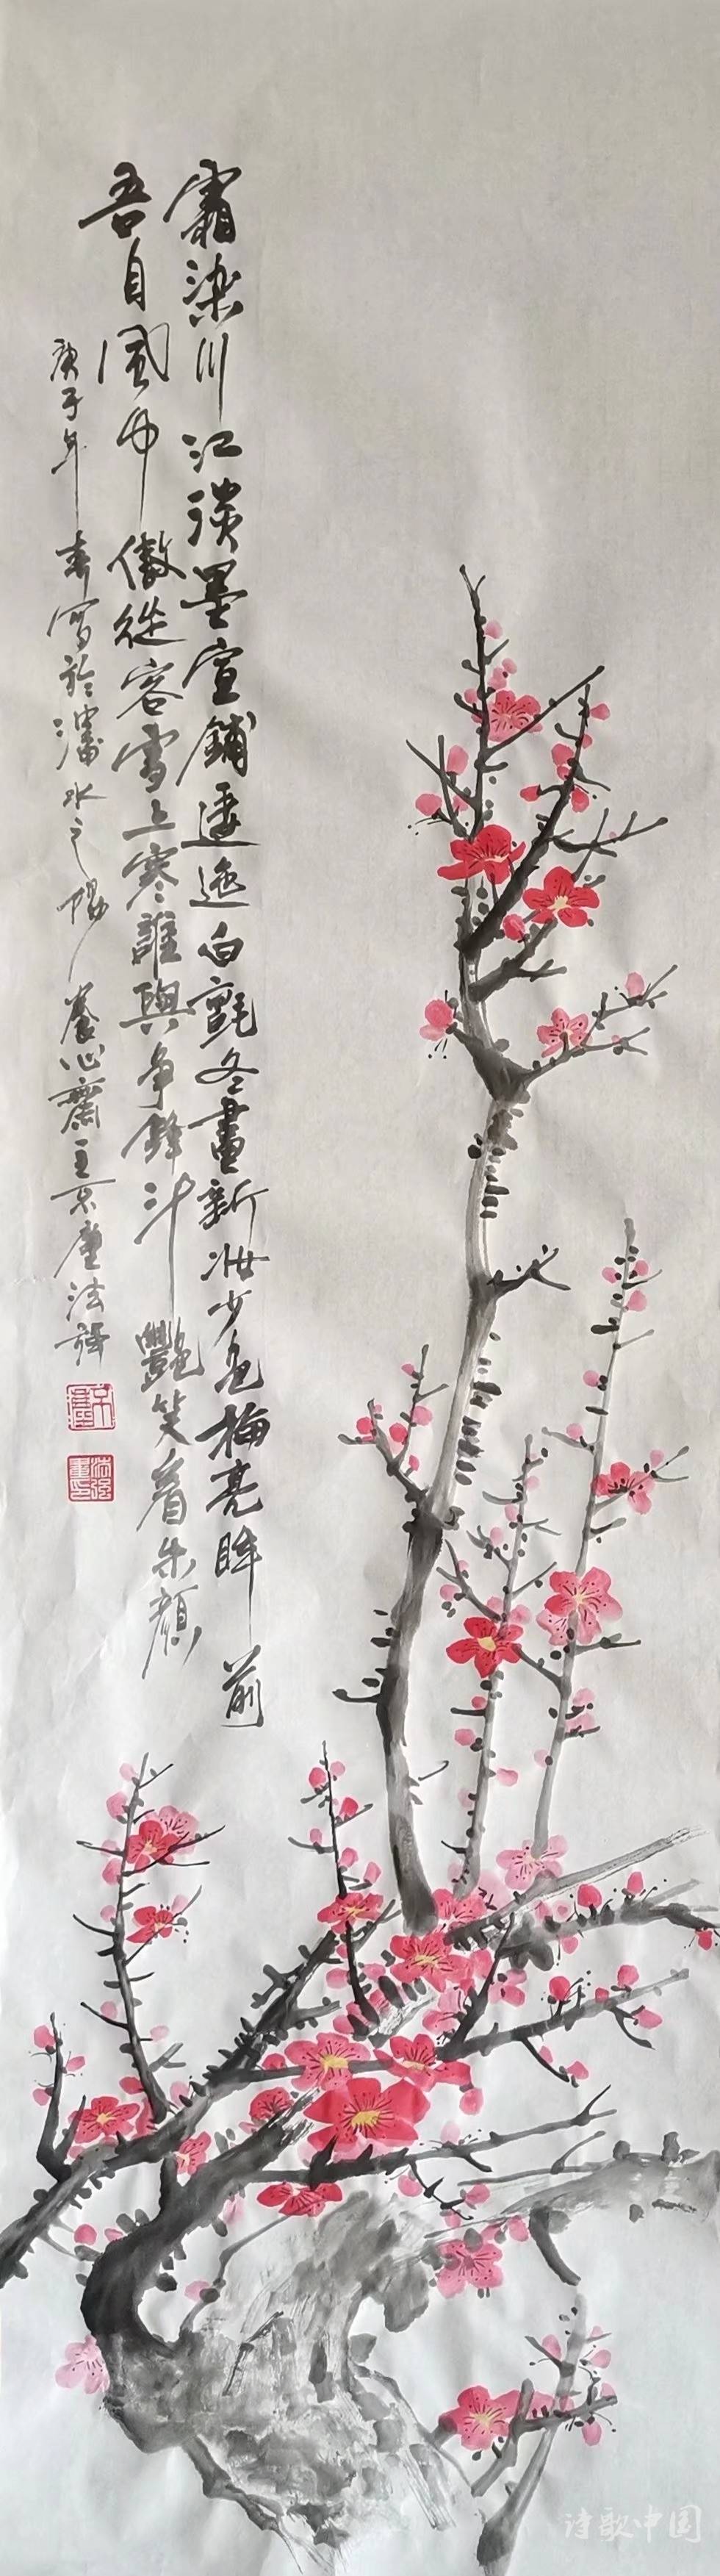 霜染川江淡墨宣鋪逶迤白氈冬畫新妝少色梅亮眸前
吾自風中傲從容雪上寒誰與争鋒斗艷笑看朱顏
庚子年春寫於瀋水之陽養心齋主京廬法强
诗歌中国